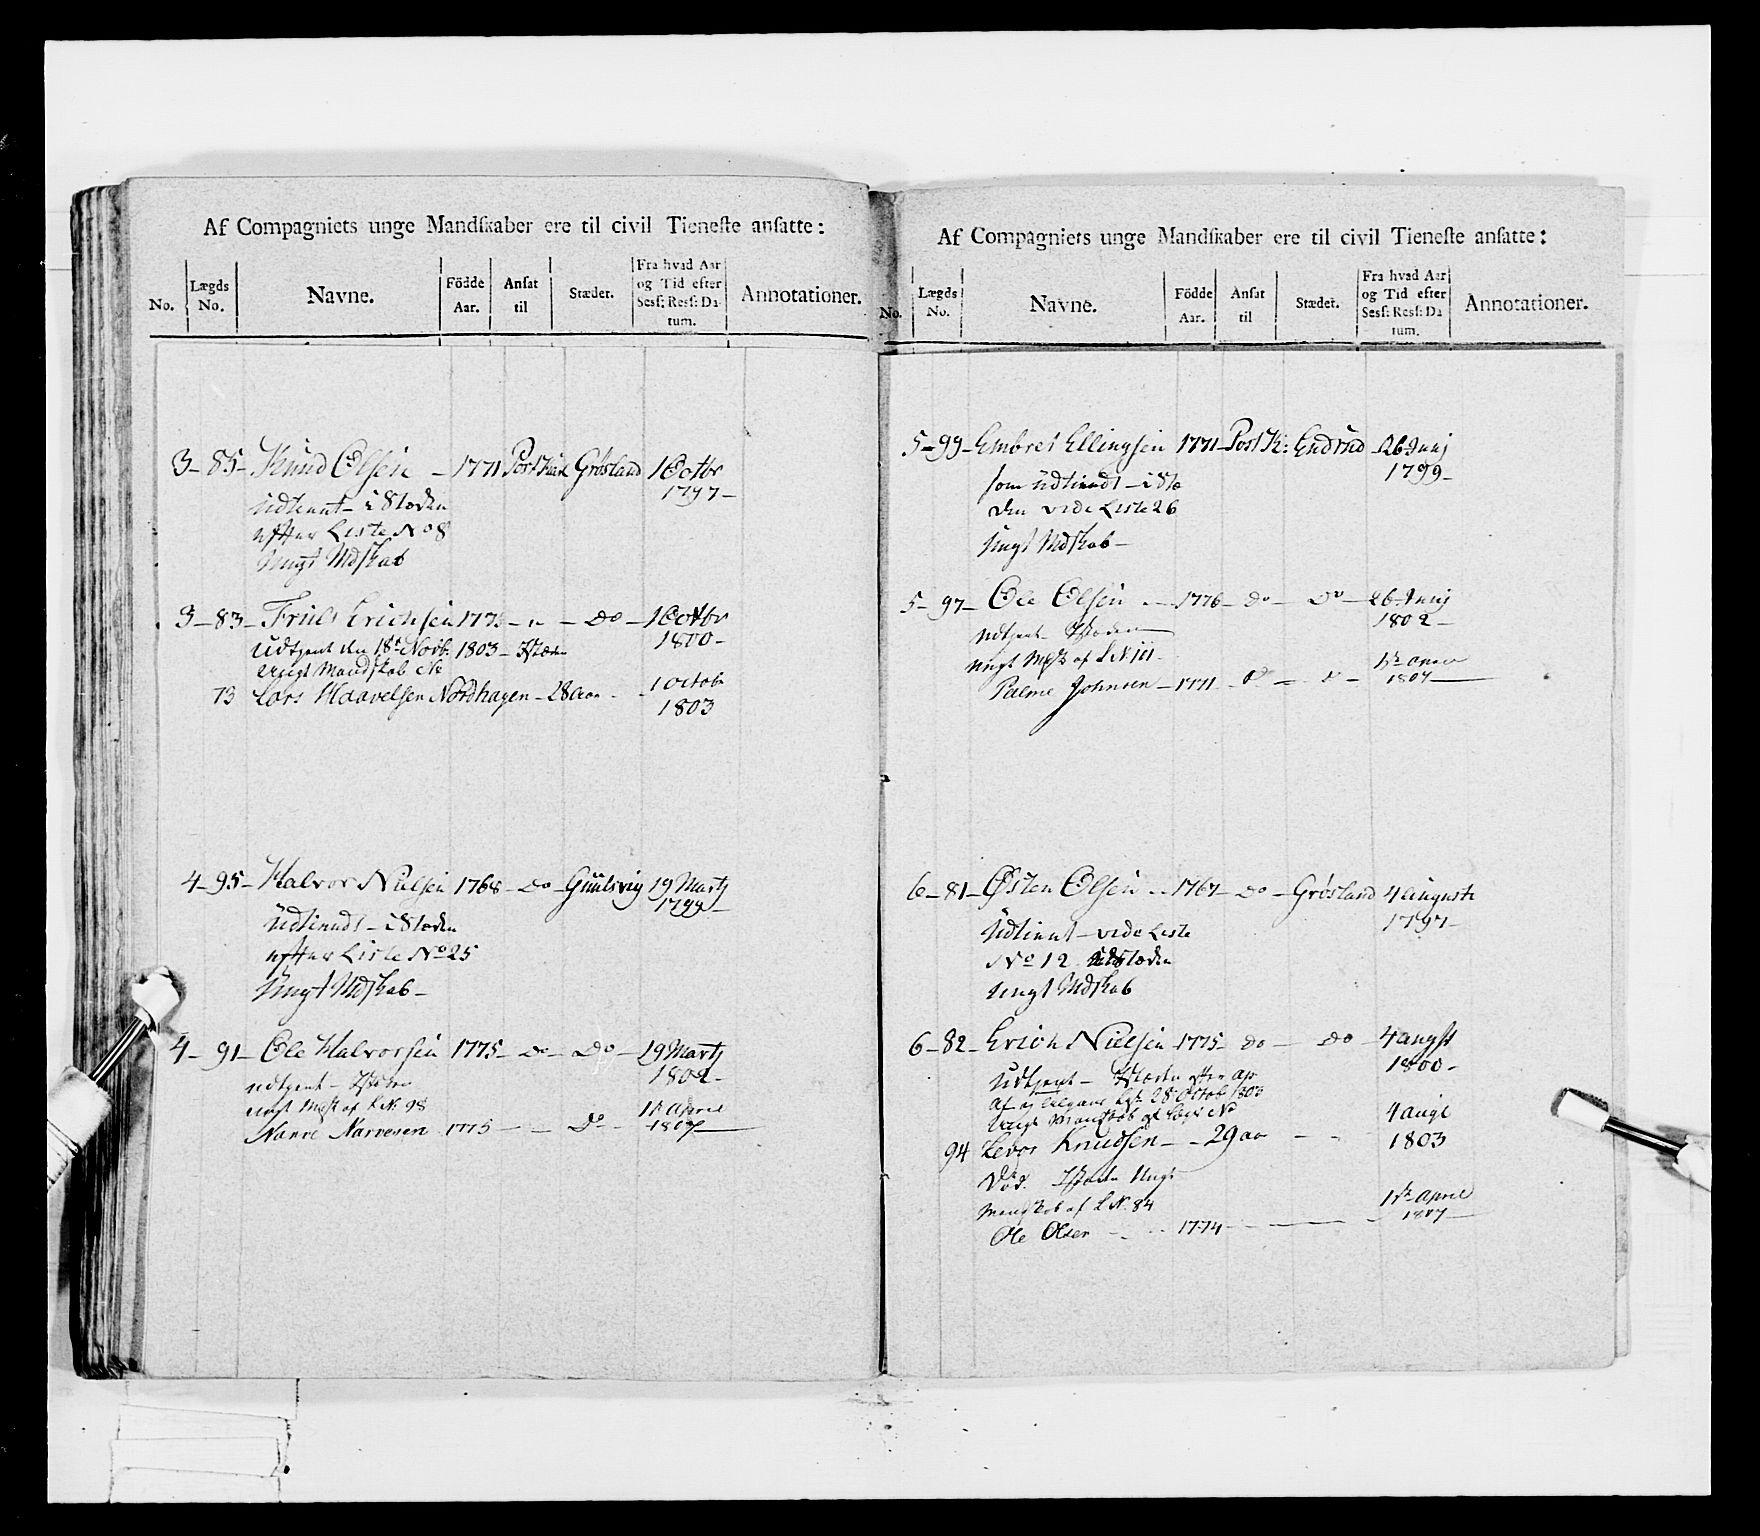 Af Compagniets unge Mandskaber ere til civil Tieneste ansatte:
No. Lægds No. Navne. Födde Aar. Ansat til Stædet. Fra hvad Aar og Tid efter Sess: Ress: Datum. Annotationer.
3 - 85 - Knud Olsen - 1771 Grösland 1 Octbr
1797 -
udtient - i Stæden
efter Liste No 8
ungt Mdskab
3 - 83 - Erichsen - Do - 1 Octbr
1800 -
udtjent den 18de Novb: 1803 - I Stæden
ungt Mandskab No
73 Lars Haavelsen Nordhagen - 28 aar - 1 Octob
1803
4 - 95 - Halvor Nielsen 1768 - Do - Gunlsvig 19 Martj
1799 -
udtiendt - i Stæden
efter Liste No 25
ungt Mdskab -
4 - 91 - Ole Halvorsen 1775 - Do - Do - 19 Martj
1802 -
udtjent -
ungt Msk af L No 98
Narve Narvesen 1775 - - Do - 1ste April
1807
Af Compagniets unge Mandskaber ere til civil Tieneste ansatte:
No. Lægds No. Navne. Födde Aar. Ansat til Stædet. Fra hvad Aar og Tid efter Sess: Ress: Datum. Annotationer.
5 - 99 - Embret Ellingsen 1771 - Post K: Endrud - 26 Junj
1799 -
som udtiendt - i Stæ
den vide Liste 26
ungt Mdskab -
5 - 97 - Ole Olsen - 1776 - Do - Do - 26 Junij
1802 -
udtjent - I Stæden
ungt Msk af L N. 111 -
Palme Johnsen - 1771 - 
1807
6 - 81 - Østen Olsen - 1767 - Do - Grösland 4 Augusti
1797 -
udtient - vide Liste
No 12 i Stæden
ungt Mdskab
6 - 82 - Erich Nielsen 1775 - Do - Do - 4 augst
1800 -
udtjent - I Stæden efter
28 Octob 1803
4 augt
94 Levor Knudsen - - 29 aar - - 1803
Död. I Stæden ungt
Mandskab af L N. 84
1ste April
Ole Olsen - - 1774 - - 1807